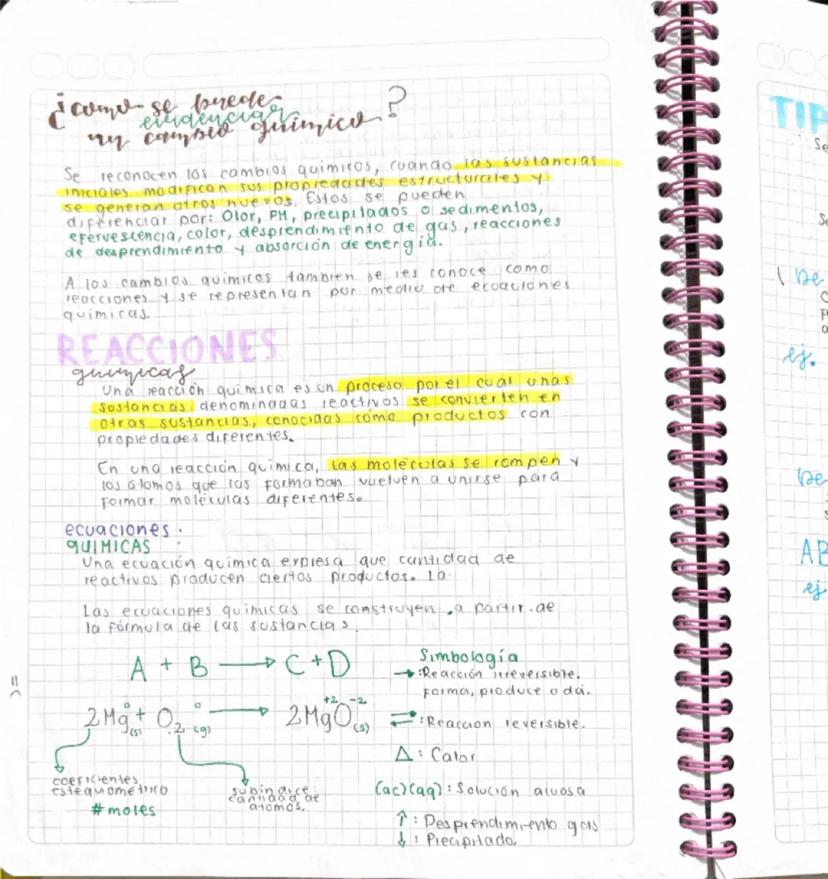 ¿como se puede
evidenciar
un cambio químico?
Se reconocen los cambios químicos, cuando las sustancias
iniciales modifican sus propiedades estructurales y
se generan otros nuevos. Estos se pueden
diferenciar por: Olor, PH, precipitados o sedimentos,
efervescencia, color, desprendimiento de gas, reacciones
de desprendimiento y absorción de energía.
A los cambios químicos tambien se les conoce como
reacciones y se representan por medio de ecuaciones
químicas.
REACCIONES
químicas
Una reacción química es un proceso por el cual unas
sustancias denominadas reactivos se convierten en
otras sustancias, conocidas como productos con
propiedades diferentes.
En una reacción química, las moléculas se rompen y
los átomos que las formaban vuelven a unirse para
formar moléculas diferentes.
ecuaciones.
QUIMICAS
Una ecuación química expresa que cantidad de
reactivos producen ciertos productos. la
Las ecuaciones químicas se construyen a partir de
la fórmula de las sustancias.
A + B → C + D
2Mg⁰(s) + O₂⁰(g) → 2Mg⁺²O⁻²(s)
coeficientes
estequiométrico
#moles
subíndice:
cantidad de
atomos.
Simbología
→ : Reacción irreversible.
forma, produce o dá.
⇌ : Reacción reversible.
Δ : Calor
(ac)(aq) : Solución acuosa
↑ : Desprendimiento gas
↓ : Precipitado.
TIP
Se
De
ej.
De
AB
ej